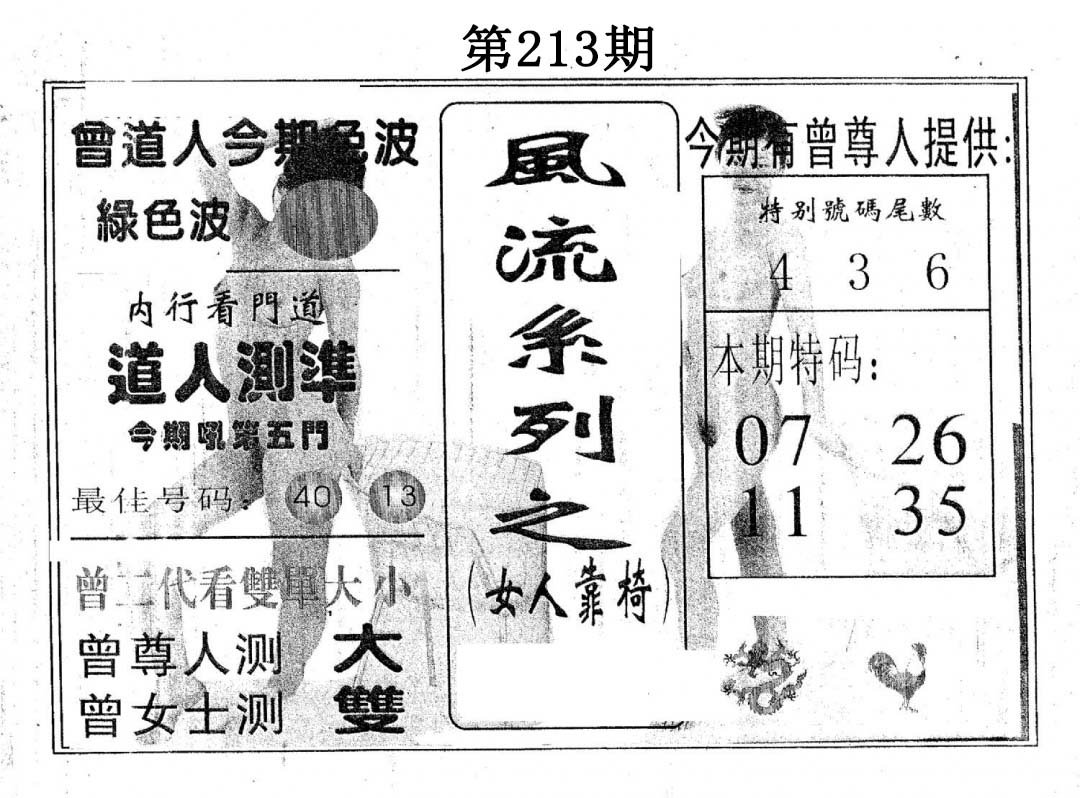 第213期
曾道人今期色波
綠色波
内行看門道
道人測準
今期吼第五門
最佳号码: 40 13
曾二代看雙單大小
曾尊人测 大
曾女士测 雙
風流系列之
(女人靠椅)
今期有曾尊人提供:
特别號碼尾數
4 3 6
本期特码:
07 26
11 35